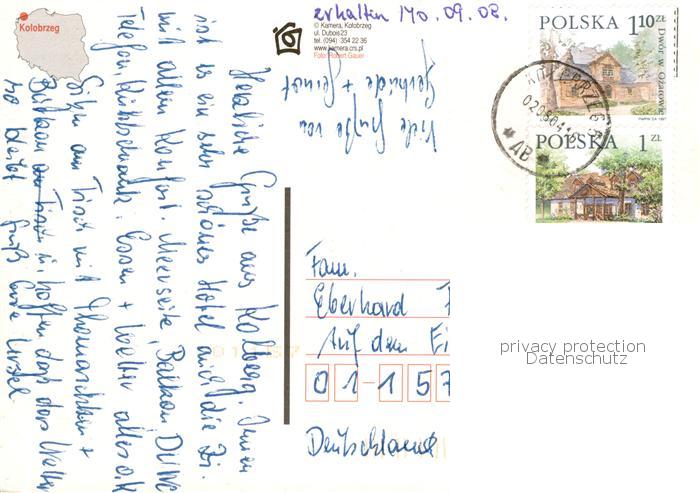 Kołobrzeg
erhalten 10.09.08.
© Kamera, Kołobrzeg
ul. Dubois 23
tel. (094) 354 22 36
www.kamera.crs.pl
Foto: Robert Gauer
POLSKA 1 10 ZŁ
Dwór w Ożarowie
POLSKA 1 ZŁ
KOŁOBRZEG
* AB *
Viele Grüße von
Gertrude +
Herzliche Grüße aus Kolberg. Immen
ist es ein sehr schönes Hotel auch die Zi.
mit allem Komfort. Meerseite, Balkon, DU/WC
Telefon, Kühlschrank. Essen + Wetter alles ok
Sitzen am Tisch mit +
Balkon u. hoffen daß das Wetter
so bleibt Gruß Eure
Fam.
Eberhard
Auf dem Ei
01-157
Deutschland
privacy protection
Datenschutz